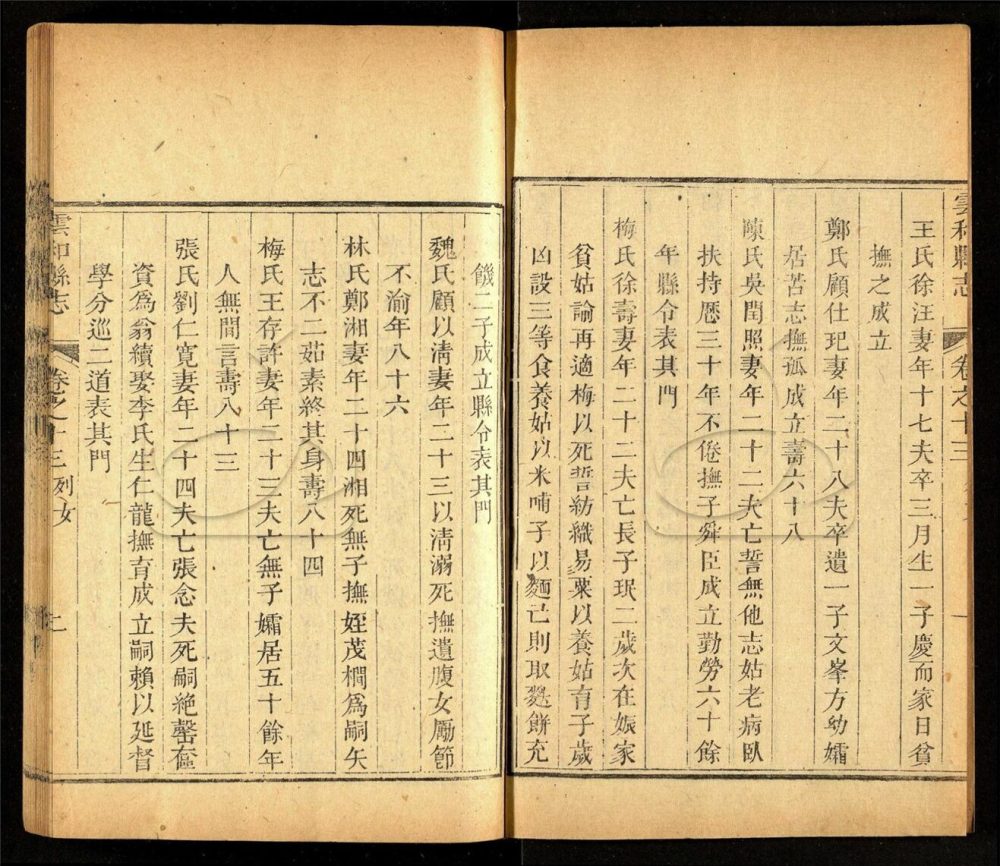 雲和縣志
卷之十三
一
王氏徐汪妻年十七夫卒三月生一子慶而家日貧
撫之成立
鄭氏顧仕玘妻年二十八夫卒遺一子文峯方幼孀
居苦志撫孤成立壽六十八
陳氏吳閏照妻年二十二夫亡誓無他志姑老病臥
扶持歷三十年不倦撫子舜臣成立勤勞六十餘
年縣令表其門
梅氏徐壽妻年二十二夫亡長子珉二歲次在娠家
貧姑諭再適梅以死誓紡織易粟以養姑育子歲
凶設三等食養姑以米哺子以麵己則取麩餅充
饑二子成立縣令表其門
魏氏顧以淸妻年二十三以淸溺死撫遺腹女勵節
不渝年八十六
林氏鄭湘妻年二十四湘死無子撫姪茂櫚爲嗣矢
志不二茹素終其身壽八十四
梅氏王存許妻年二十三夫亡無子孀居五十餘年
人無閒言壽八十三
張氏劉仁寬妻年二十四夫亡張念夫死嗣絶罄奩
資爲翁續娶李氏生仁龍撫育成立嗣賴以延督
學分巡二道表其門
雲和縣志
卷之十三 列女
二